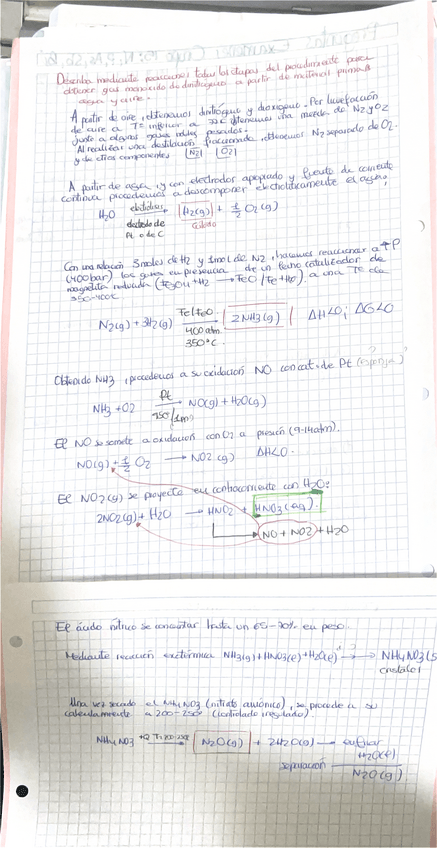 Describa mediante reacciones todas las etapas del procedimiento para
obtener gas monóxido de dinitrógeno a partir de materias primas
agua y aire.
A partir de aire, obtenemos dinitrógeno y dioxógeno. Por licuefacción
de aire a Tª inferior a obtenemos una mezcla de N2 y O2
junto a algunos gases nobles pesados.
Al realizar una destilación fraccionada, obtenemos N2 separado de O2
y de otros componentes [N2] [O2]
A partir de agua, y con electrodos apropiado y fuente de corriente
continua procedemos a descomponer electrolíticamente el agua,
H2O electrólisis → H2(g) + 1/2 O2(g)
electrodo de cátodo
Pt o de C
Con una relación 3moles de H2 y 1mol de N2, hacemos reaccionar a ↑P
(400bar) los gases en presencia de un catalizador de
magnetita reducida (Fe3O4 + H2 → FeO/Fe + H2O), a una Tª de
350-400ºC
N2(g) + 3H2(g) Fe/FeO → 2NH3(g) ΔH<0; ΔG<0
400atm
350ºC
Obtenido NH3, procedemos a su oxidación NO con cat. de Pt (esponja)
NH3 + O2 Pt → NO(g) + H2O(g)
El NO se somete a oxidación con O2 a presión (9-14atm).
NO(g) + 1/2 O2 → NO2 (g) ΔH<0.
El NO2(g) se proyecta en contracorriente con H2O:
2NO2(g) + H2O → HNO2 + HNO3(aq).
NO + NO2 + H2O
El ácido nítrico se concentar hasta un 65-70% en peso.
Mediante reacción exotérmica NH3(g) + HNO3(l) + H2O(l) → NH4NO3(s
cristal
Una vez secado el NH4NO3 (nitrato amónico), se procede a su
calentamiento a 200-250º (controlado irregulado).
NH4NO3 +Q T: 200-250º → N2O(g) + 2H2O(g) → enfriar
H2O(l)
separación N2O(g)